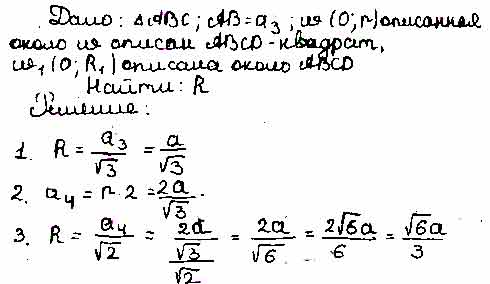 Дано: △ABC; AB=a₃; ω(O;r) описанная
около ω описан ABCD-квадрат,
ω₁(O;R₁) описана около ABCD
Найти: R
Решение:
1. R = a₃/√3 = a/√3
2. a₄ = r·2 = 2a/√3.
3. R = a₄/√2 = 2a/√3/√2 = 2a/√6 = 2√6a/6 = √6a/3